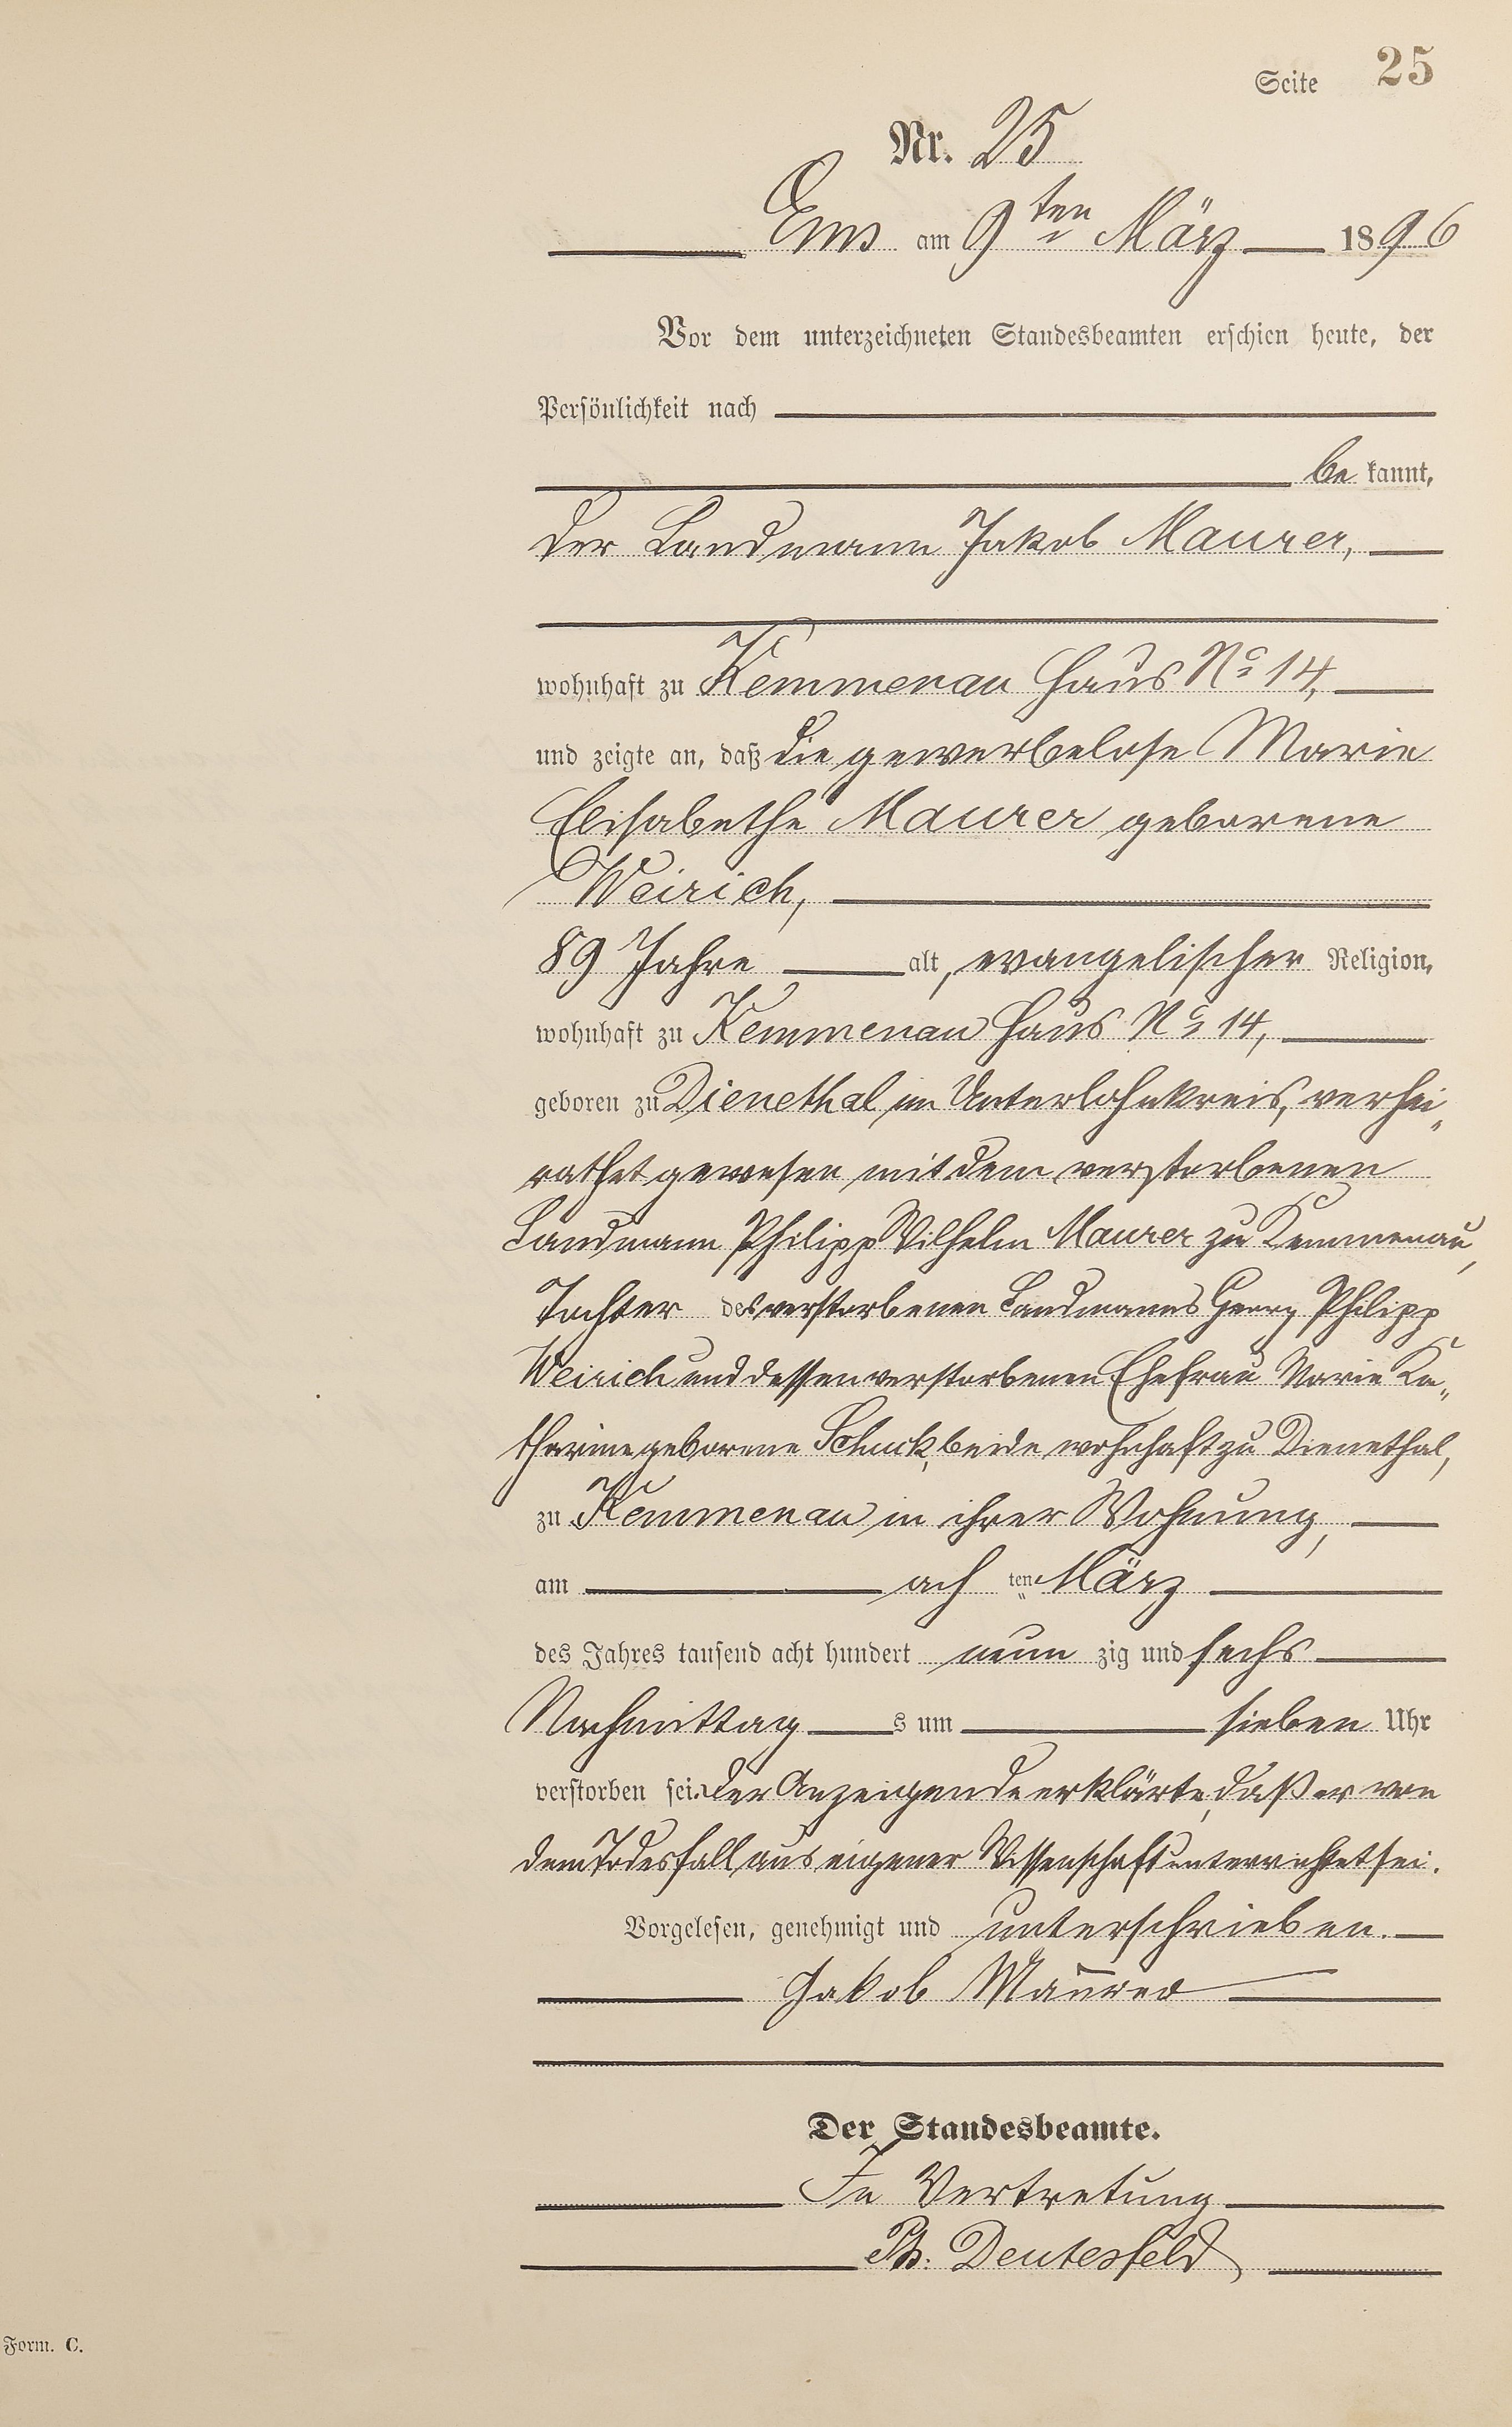 Seite 25
Nr. 25
Ems am 9ten März 1896
Vor dem unterzeichneten Standesbeamten erschien heute, der
Persönlichkeit nach
be kannt,
der Landmann Jakob Maurer,
wohnhaft zu Kemmenau Haus No 14,
und zeigte an, daß die gewerbelose Marie
Elisabethe Maurer geborene
Weirich,
89 Jahre alt, evangelischer Religion,
wohnhaft zu Kemmenau Haus No 14,
geboren zu Dienethal im Unterlahnkreis, verhei„
rathet gewesen mit dem verstorbenen
Landmann Philipp Wilhelm Maurer zu Kemmenau,
Tochter des verstorbenen Landmanns Georg Philipp
Weirich und dessen verstorbenen Ehefrau Marie Ka„
tharine geborene Schuck, beide wohnhaft zu Dienethal,
zu Kemmenau in ihrer Wohnung,
am ach ten März
des Jahres tausend acht hundert neun zig und sechs
Nachmittag s um sieben Uhr
verstorben sei. Der Anzeigende erklärte, daß er von
dem Todesfall aus eigener Wissenschaft unterrichtet sei.
Vorgelesen, genehmigt und unterschrieben.
Jakob Maurer
Der Standesbeamte.
In Vertretung
Ph. Deutesfeld
Form. C.